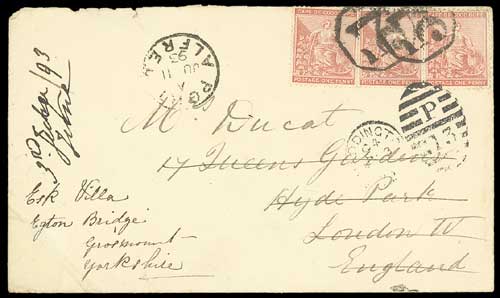 CAPE OF GOOD HOPE CAPE OF GOOD HOPE CAPE OF GOOD HOPE
POSTAGE ONE PENNY POSTAGE ONE PENNY POSTAGE ONE PENNY
ALFRED
JU 11
93
P
13
DINGT
3rd July/93
M. Ducat
17 Queens Gardens
Hyde Park
London W
England
Esk Villa
Egton Bridge
Grosmount
Yorkshire